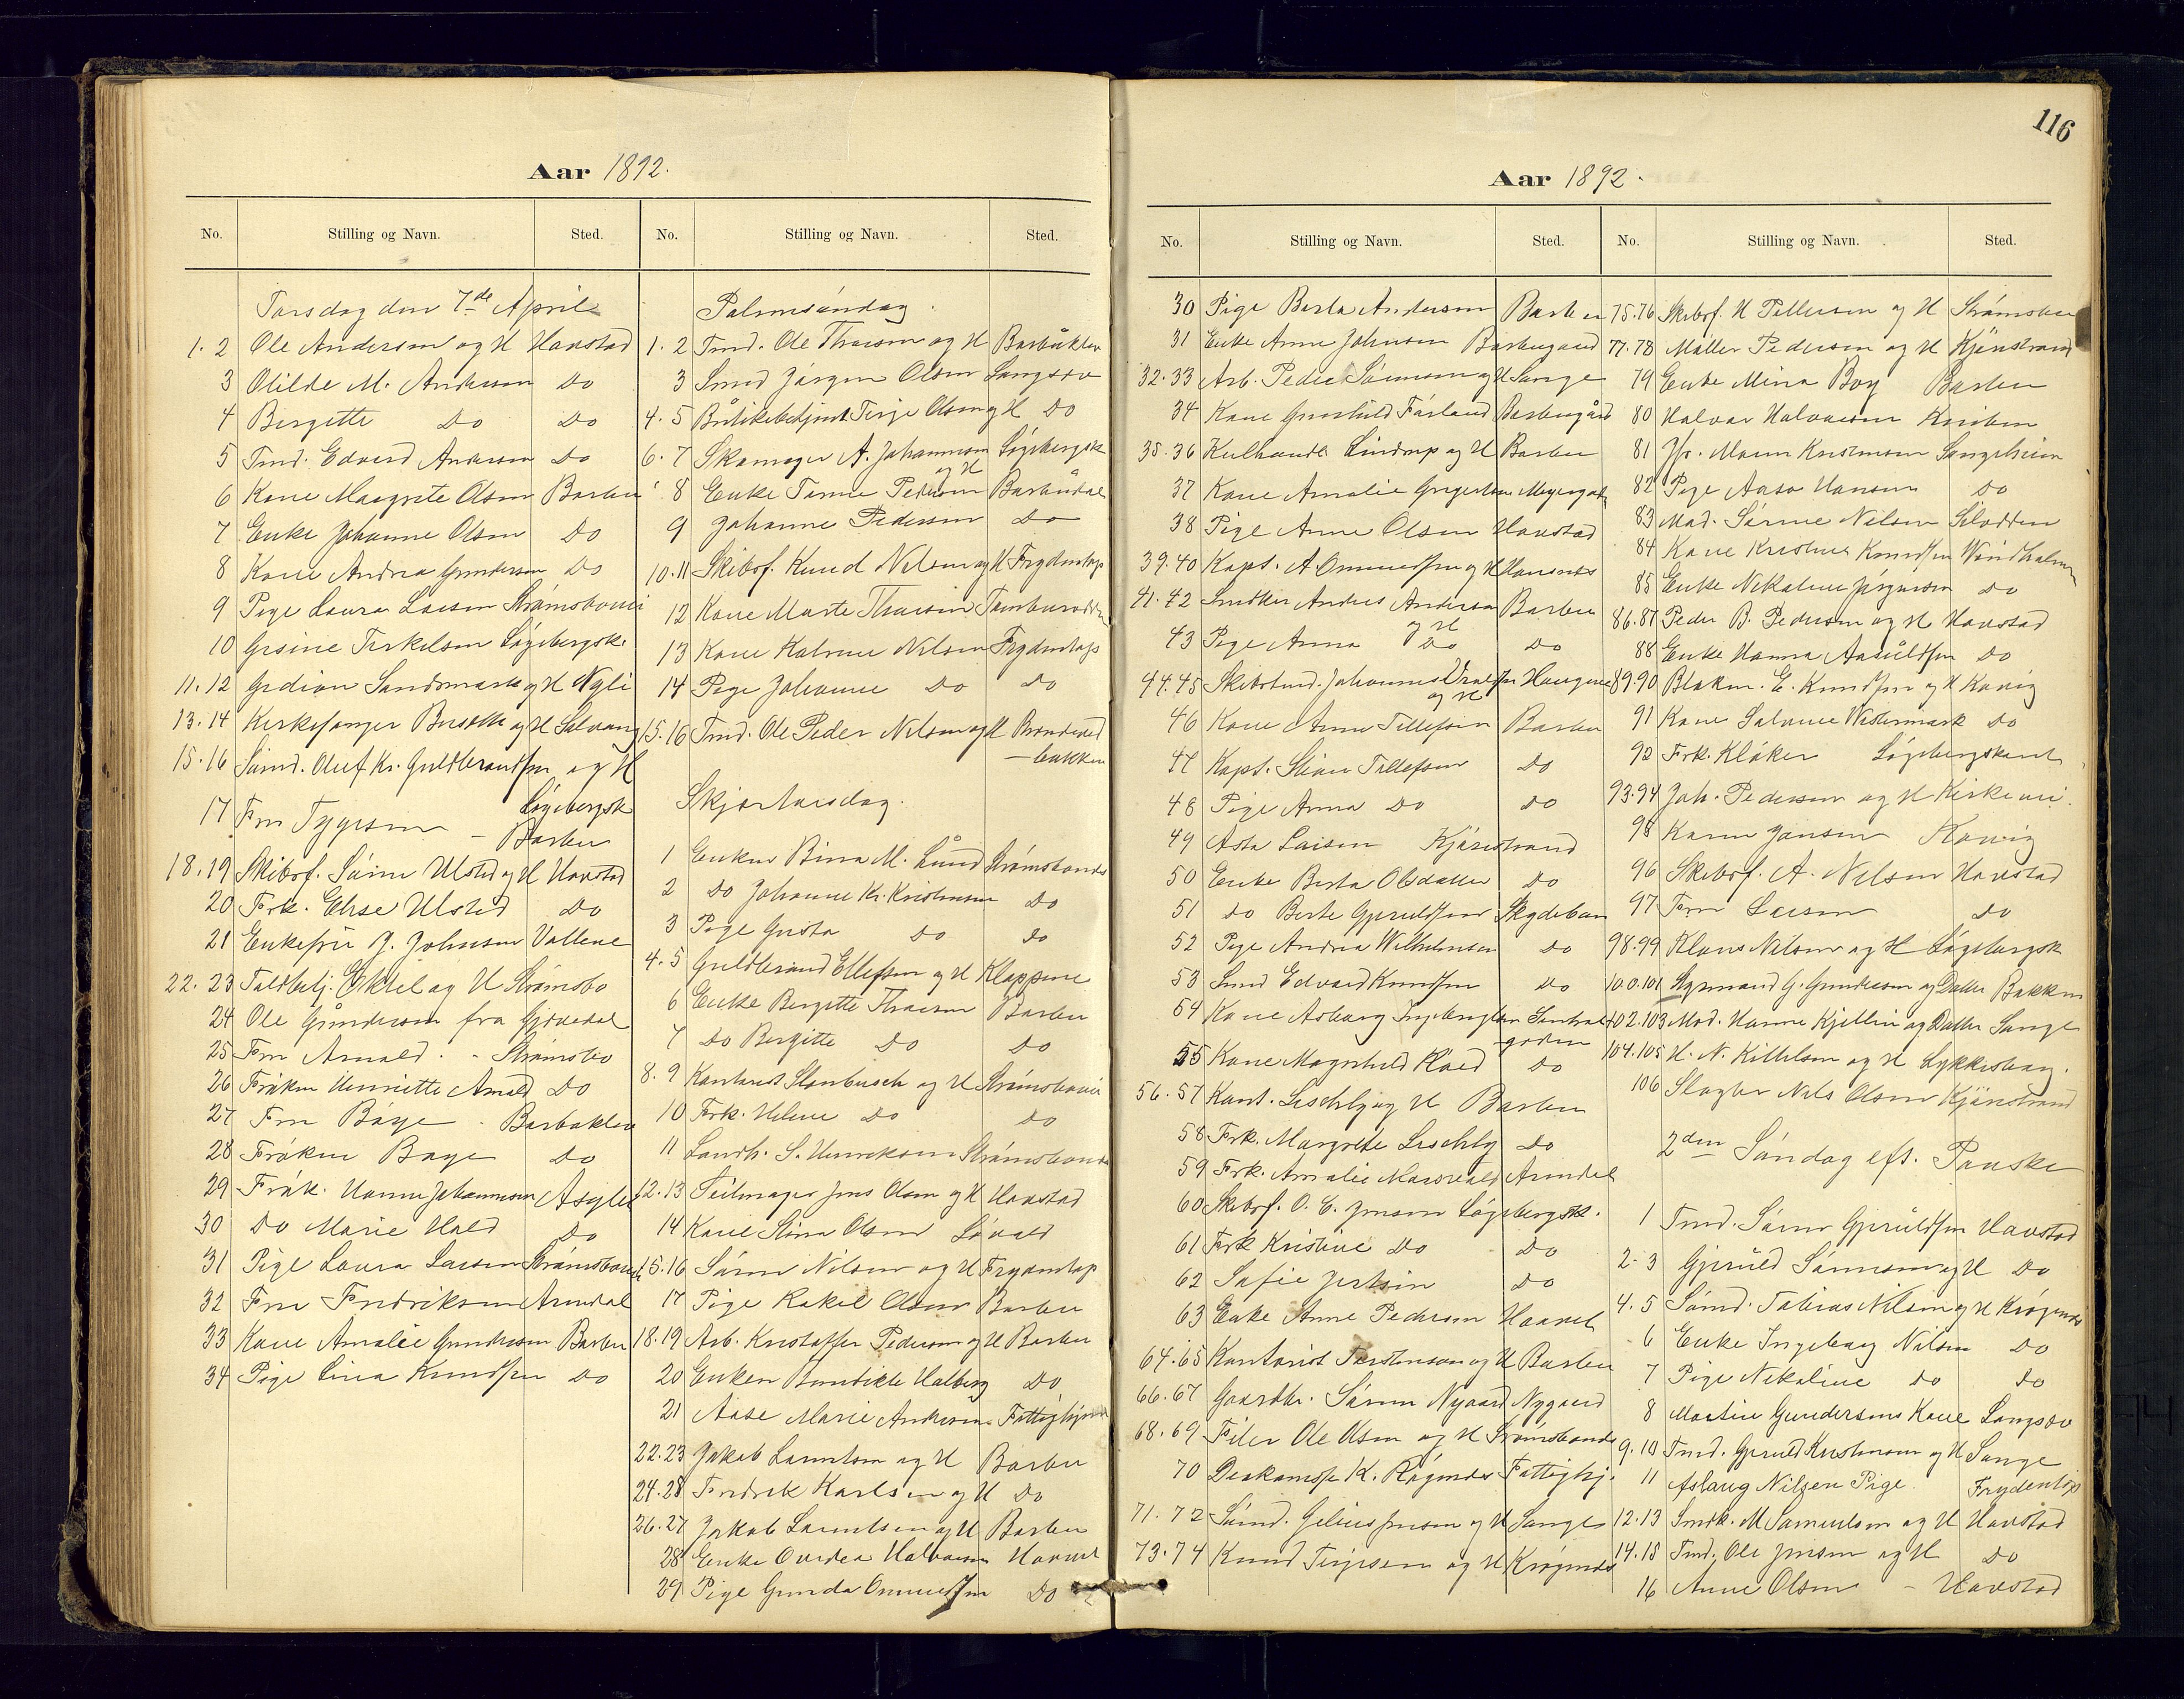 Aar 1892.
No. Stilling og Navn. Sted.
Torsdag den 7de April
1. 2 Ole Anderson og H Havstad
3 Otilde M. Anderson Do
4 Birgitte Do Do
5 Tmd. Edvard Anderson Do
6 Kone Maagrete Olsen Barbu
7 Enke Johanne Olsen Do
8 Kone Andrea Gundersen Do
9 Pige Laura Larsen Strømsbouei
10 Gesine Terkelsen Løgebergsk.
11. 12 Gedion Sandsmark og H Nyli
13. 14 Kirkesanger og H Solvang
15. 16 Sømd. Oluf Kr. Guldbrandsen og H
Løgebergsk
17 Fru Tygesen - Barbu
18. 19 Skibsf. Søren Ulsted og H Havstad
20 Frk. Elise Ulsted Do
21 Enkefru J. Johnsen Vollene
22. 23 Toldbetj. og H Strømsbo
24 Ole Gundersen fra Gjøvedal
25 Fru Arnold. - Strømsbo
26 Frøken Henriette Arnold Do
27 Fru Bøye. Barbuklev
28 Frøken Bøye Do
29 Frøk. Hanna Johannesen Asylet
30 Do Marie Hald Do
31 Pige Laura Larsen Strømsbouei
32 Fru Fredriksen Arendal
33 Kone Amalie Gundersen Barbu
34 Pige Lina Knudsen Do
No. Stilling og Navn. Sted.
Palmesøndag.
1. 2 Tmd. Ole Thorsen og H Barbuklev
3 Smed Jørgen Olsen Langsæv
4. 5 Butikbetjent Terje Olsen og H Do
6. 7 Skomager A. Johannesen og H Løgebergsk
8 Enke Tomine Pedersen Barbudal
9 Johanne Pedersen Do
10. 11 Skibsf. Knud Nilsen og H Frydentop
12 Kone Marte Thorsen Tamburodden
13 Kone Katrine Nilsen Frydentop
14 Pige Johanne Do Do
15. 16 Tmd. Ole Peder Nilsen og H
- bakken
Skjærtorsdag.
1 Enken Bina M. Lund Strømsboneset
2 Do Johanne Kr. Kristensen Do
3 Pige Gusta Do Do
4. 5 Guldbrand Ellefsen og H Kloppene
6 Enke Birgitte Thorsen Barbu
7 Do Birgitte Do Do
8. 9 Kantorist Stenbusch og H Strømsbouei
10 Frk. Helene Do Do
11 Landh. S. Henriksen Strømsbo
12. 13 Seilmager Jens Olsen og H Havstad
14 Kone Stina Olsen Løvold
15. 16 Søren Nilsen og H Frydentop
17 Pige Rakel Olsen Barbu
18. 19 Arb. Kristoffer Pedersen og H Barbu
20 Enken Benedikte Halberg Do
21 Aase Marie Andersen Fattighjem
22. 23 Jakob Larentsen og H Barbu
24. 25 Fredrik Karlsen og H Do
26. 27 Jakob Larentsen og H Barbu
28 Enke Ovedia Halvorsen Havstad
29 Pige Gunda Omundsen Do
116
Aar 1892.
No. Stilling og Navn. Sted.
30 Pige Berta Andersen Barbu
31 Enke Anne Johnsen Barbugaard
32. 33 Arb. Peder Sørensen og H Songe
34 Kone Gunhild Færland Barbugård
35. 36 Kulhandl. Lindrup og H Barbu
37 Kone Amalie Gregertsen
38 Pige Anne Olsen Havstad
39. 40 Kapt. A Omundsen og H Havsnes
41. 42 Snedker Andres Andersen og H Barbu
43 Pige Anna Do Do
44. 45 Skibstmd. Johannes og H Haugene
46 Kone Anne Tellefsen Barbu
47 Kapt. Stian Tellefsen Do
48 Pige Anna Do Do
49 Asta Larsen Kjænstrand
50 Enke Berta Olsdatter Do
51 Do Berte Gjeruldsen Skydeban
52 Pige Andrea Wilhelmsen Do
53 Smed Edvard Knudsen Do
54 Kone Asborg Ingebregtsen
gaden
55 Kone Magnhild Roed Do
56. 57 Kont. Leschly og H Barbu
58 Frk. Margrete Leschly Do
59 Frk. Amalie Marsvald Arendal
60 Skibsf. O. C. Jensen Løgebergsk.
61 Frk Kristine Do Do
62 Sofie Jertsen Do
63 Enke Anne Pedersen Havstad
64. 65 Kantorist Torstensen og H Barbu
66. 67 Gaardbr. Søren Nygaard Nygaard
68. 69 Filer Ole Olsen og H Strømsboneset
70 Diakonisse K. Røgenes Fattighj.
71. 72 Sømd. Gelius Jensen og H Songe
73. 74 Knud Terjesen og H Krøgenes
No. Stilling og Navn. Sted.
75. 76 Skibsf. H Tellesen og H Strømsbu
77. 78 Møller Pedersen og H Kjænstrand
79 Enke Mina Boy Barbu
80 Halvor Halvorsen Kniben
81 Jfr. Maren Kristensen Songeheien
82 Pige Aase Hansen Do
83 Mad. Sørine Nilsen Solodden
84 Kone Kristine Knudsen Windholmen
85 Enke Nikoline Jørgensen Do
86. 87 Peder B. Pedersen og H Havstad
88 Enke Hanna Aasuldsen Do
89. 90 Blokm. E. Knudsen og H Kavig
91 Kone Salvine Westermark Do
92 Frk. Kløker Løgebergskant
93. 94 Joh. Pedersen og H Kirkevei.
95 Karen Jansen Kavig
96 Skibsf. A. Nilsen Havstad
97 Fru Larsen Do
98. 99 Klaus Nilsen og H Løgebergsk
100. 101 G. Gundersen og Datter Bakken
102. 103 Mad. Hanne Kjellin og Datter Songe
104. 105 H. N. Kittelsen og H Lykkesborg.
106 Slagter Nils Olsen Kjænstrand
2den Søndag eft. Paaske
1 Tmd. Søren Gjeruldsen Havstad
2. 3 Gjeruld Sørensen og H Do
4. 5 Sømd. Tobias Nilsen og H Krøgenes
6 Enke Ingeborg Nilsen Do
7 Pige Nikoline Do Do
8 Martin Gundersens Kone Langsæv
9. 10 Tmd. Gjeruld Kristensen og H Songe
11 Aslaug Nilsen Pige Frydentop
12. 13 Snedk. M Samuelsen og H Havstad
14. 15 Tmd. Ole Jensen og H Do
16 Anne Olsen - Havstad